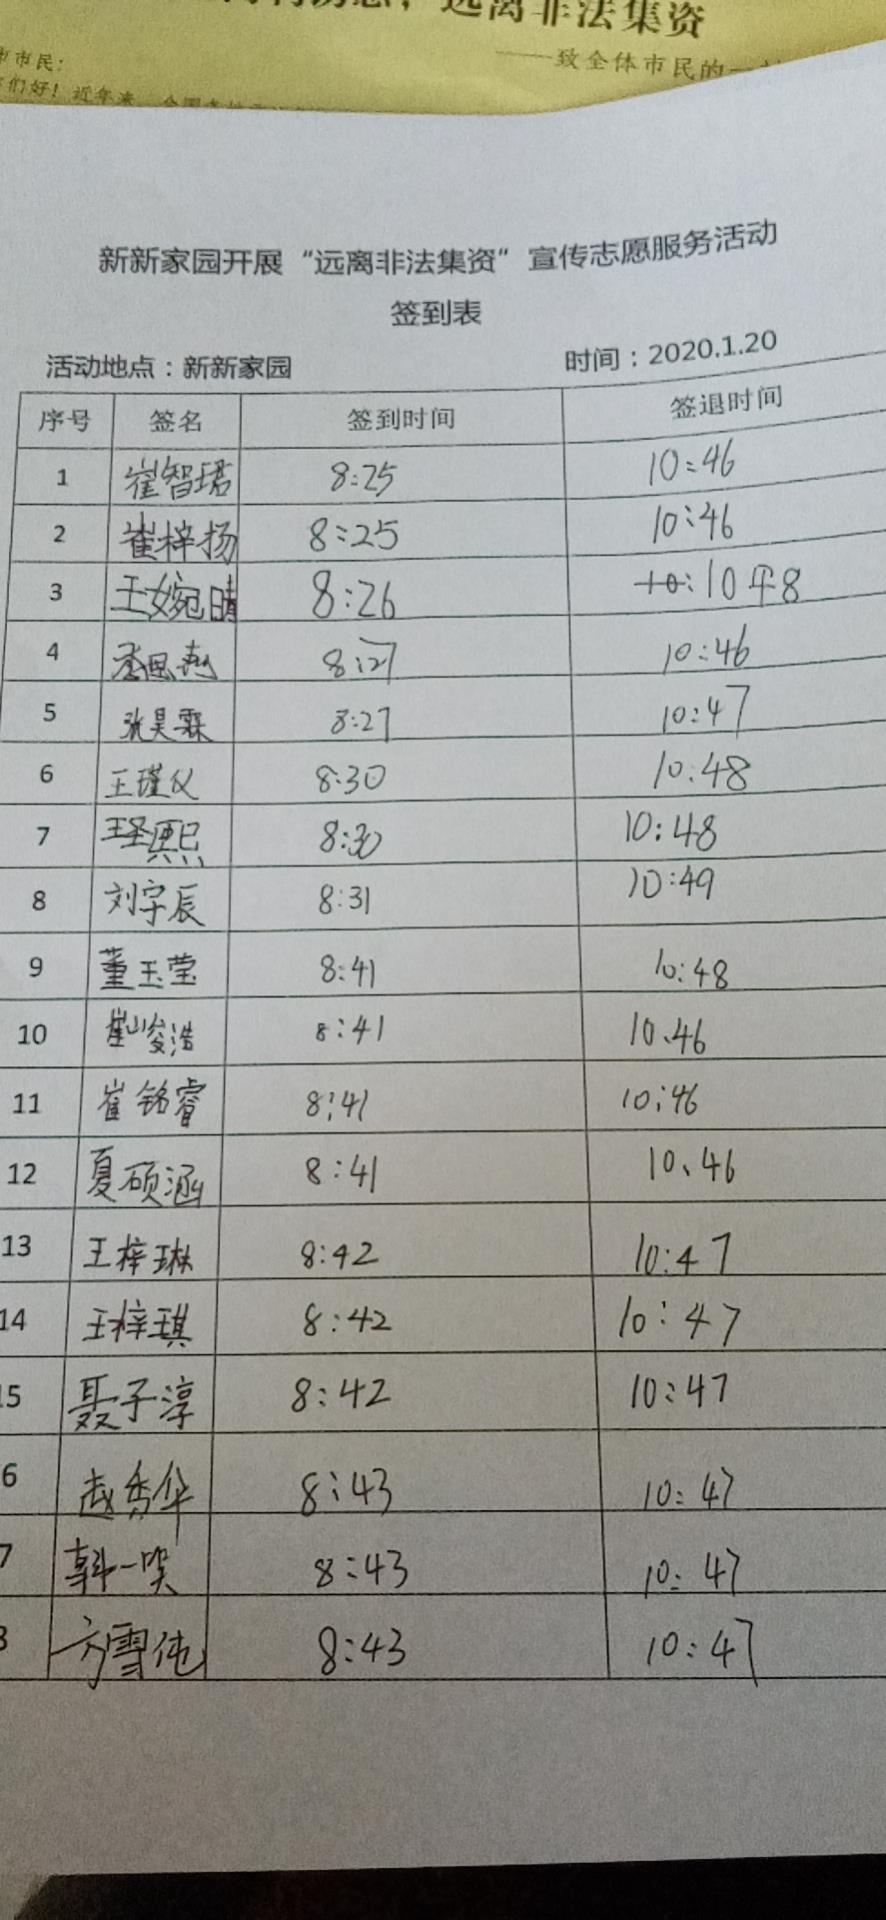 远离非法集资
——致全体市民的一
市民:
们好！近年来
新新家园开展“远离非法集资”宣传志愿服务活动
签到表
活动地点：新新家园 时间：2020.1.20
序号 签名 签到时间 签退时间
1 崔智珺 8:25 10:46
2 崔梓扬 8:25 10:46
3 王婉晴 8:26 10:48
4 8:27 10:46
5 张昊霖 8:27 10:47
6 王瑾仪 8:30 10:48
7 王圣熙 8:30 10:48
8 刘宇辰 8:31 10:49
9 董玉莹 8:41 10:48
10 崔峻浩 8:41 10.46
11 崔铭睿 8:41 10:46
12 夏硕涵 8:41 10、46
13 王梓琳 8:42 10:47
14 王梓琪 8:42 10:47
5 聂子淳 8:42 10:47
6 赵秀华 8:43 10:47
7 韩一 8:43 10:47
方雪纯 8:43 10:47